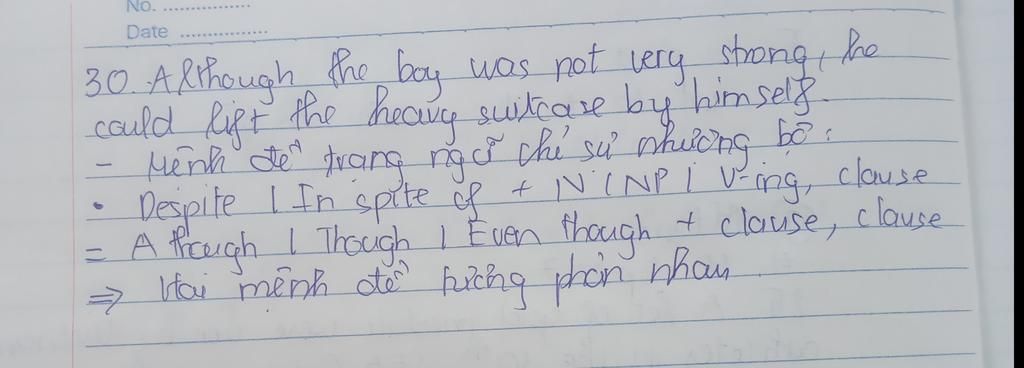 No. ................
Date ................
30. Although the boy was not very strong, he
could lift the heavy suitcase by himself.
- Mệnh đề trạng ngữ chỉ sự nhượng bộ:
• Despite / In spite of + N / NP / V-ing, clause
= Although / Though / Even though + clause, clause
⇒ Hai mệnh đề tương phản nhau